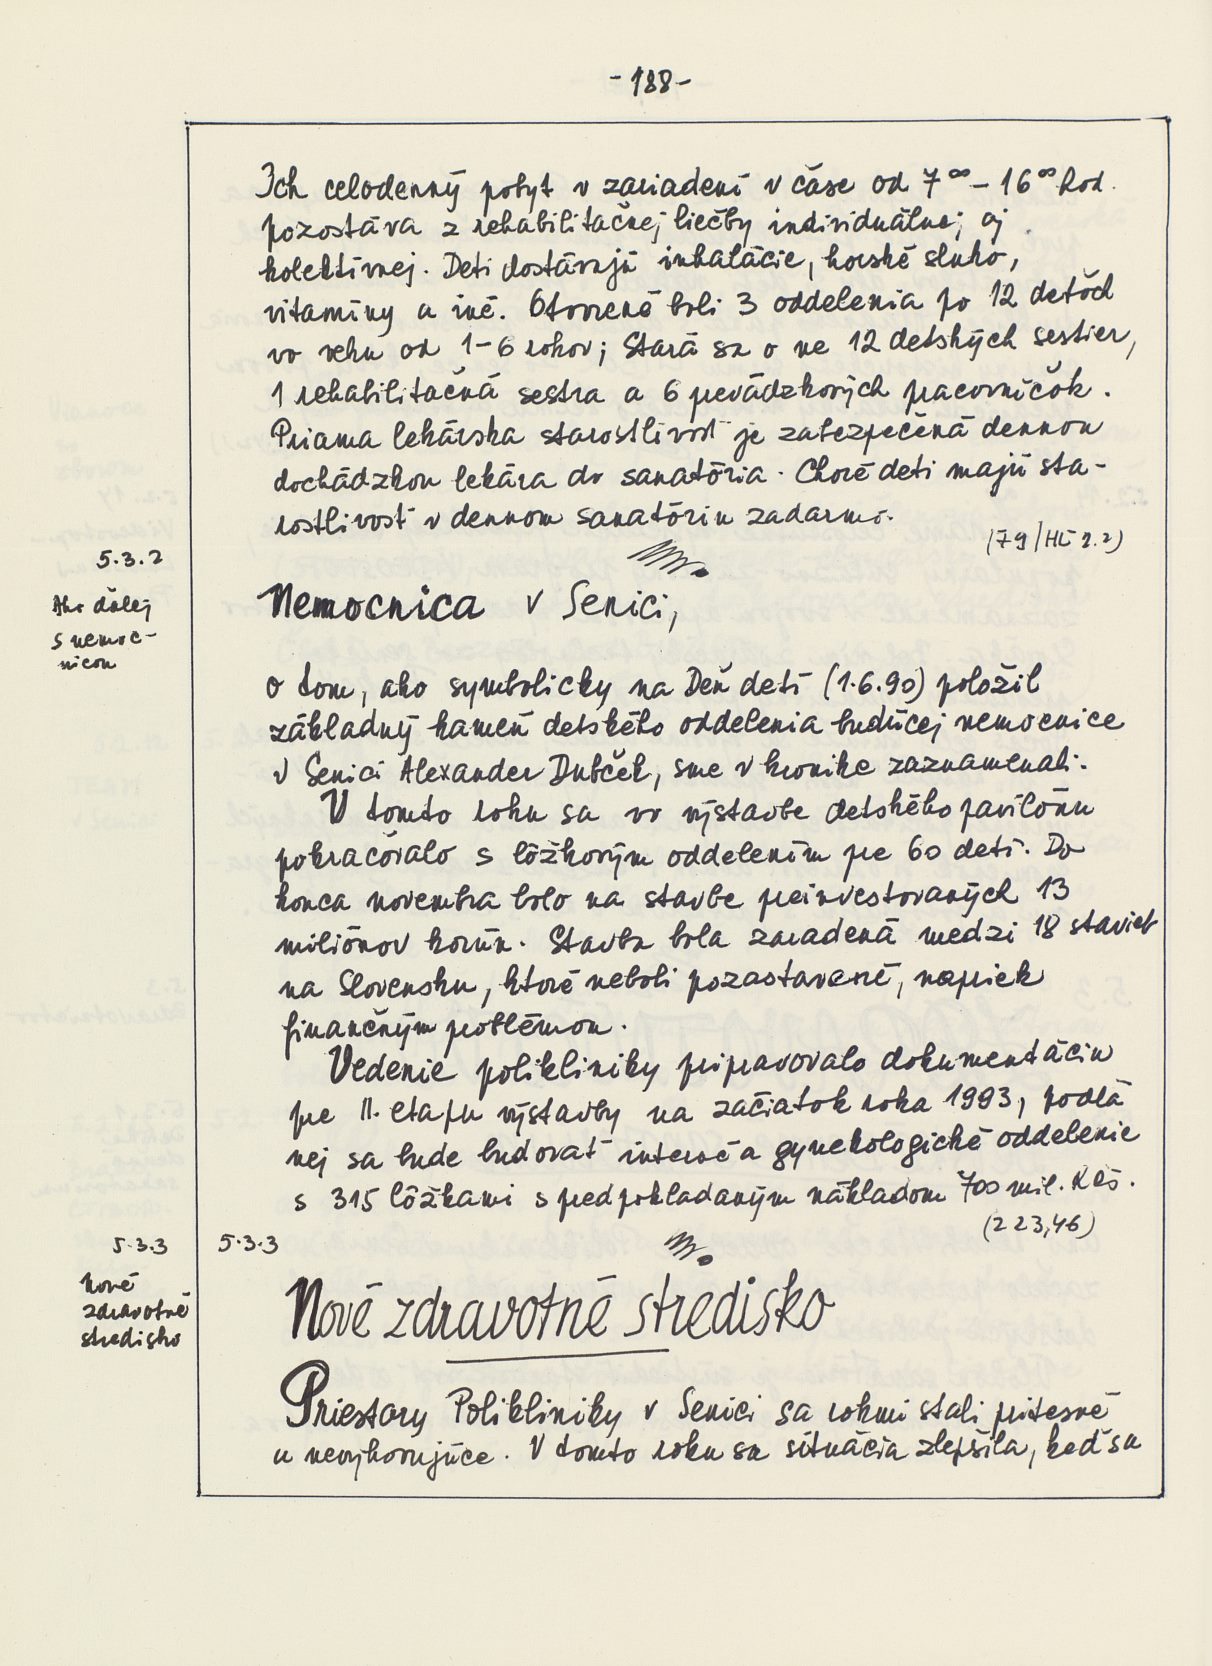 -188-
Ich celodenný pobyt v zariadení v čase od 7⁰⁰-16⁰⁰ hod.
pozostáva z rehabilitačnej liečby individuálnej aj
kolektívnej. Deti dostávajú inhalácie, horské slnko,
vitamíny a iné. Otvorené boli 3 oddelenia po 12 detoch
vo veku od 1-6 rokov; Stará sa o ne 12 detských sestier,
1 rehabilitačná sestra a 6 prevádzkových pracovníčok.
Priama lekárska starostlivosť je zabezpečená dennou
dochádzkou lekára do sanatória. Choré deti majú sta-
rostlivosť v dennom sanatóriu zadarmo.
5.3.2
Ako ďalej
s nemoc-
nicou
Nemocnica v Senici,
o tom, ako symbolicky na Deň detí (1.6.90) položil
základný kameň detského oddelenia budúcej nemocnice
v Senici Alexander Dubček, sme v kronike zaznamenali.
V tomto roku sa vo výstavbe detského pavilónu
pokračovalo s lôžkovým oddelením pre 60 detí. Do
konca novembra bolo na stavbe preinvestovaných 13
miliónov korún. Stavba bola zaradená medzi 18 stavieb
na Slovensku, ktoré neboli pozastavené, napriek
finančným problémom.
Vedenie polikliniky pripravovalo dokumentáciu
pre II. etapu výstavby na začiatok roka 1993, podľa
nej sa bude budovať interné a gynekologické oddelenie
s 315 lôžkami s predpokladaným nákladom 700 mil. Kčs.
(223,46)
5.3.3
Nové
zdravotné
stredisko
5.3.3
Nové zdravotné stredisko
Priestory Polikliniky v Senici sa rokmi stali pritesné
a nevyhovujúce. V tomto roku sa situácia zlepšila, keď sa